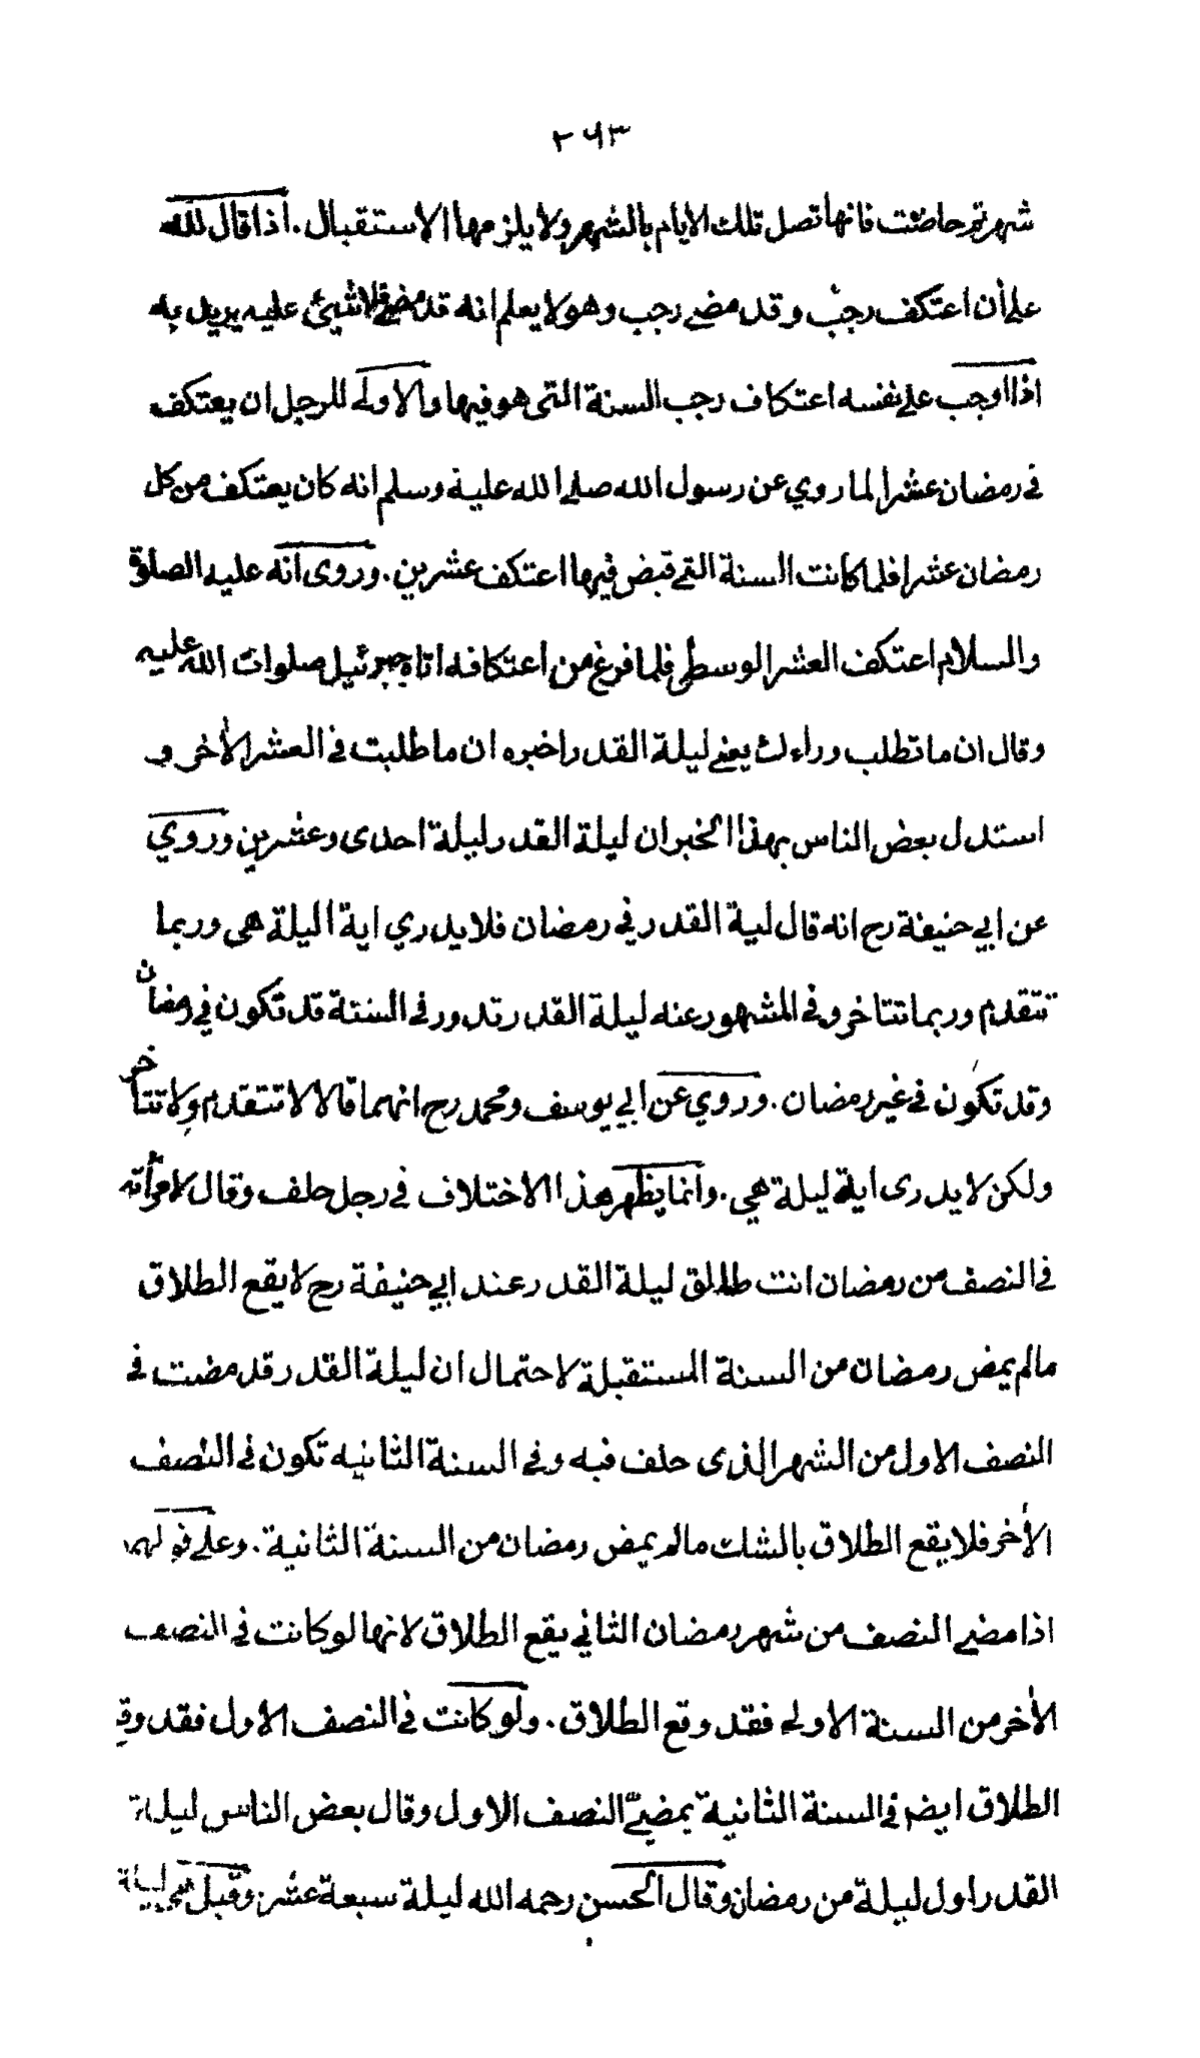 ٢٦٣
شهر ثم حاضت فانها تصل تلك الايام بالشهر ولا يلزمها الاستقبال . اذا قال لله
على أن اعتكف رجب وقد مضى رجب وهو لا يعلم انه قد مضى فلا شيئ عليه يريد به
اذا اوجب على نفسه اعتكاف رجب السنة التى هو فيها والاولى للرجل ان يعتكف
فى رمضان عشرا لما روي عن رسول الله صلى الله عليه وسلم انه كان يعتكف من كل
رمضان عشرا فلما كانت السنة التى قبض فيها اعتكف عشرين . وروى انه عليه الصلوة
والسلام اعتكف العشر الوسطى فلما فرغ من اعتكافه اتاه جبرئيل صلوات الله عليه
وقال ان ما تطلب وراءك يعنى ليلة القدر اخبره ان ما طلبت فى العشر الأخر و
استدل بعض الناس بهذا الخبر ان ليلة القدر ليلة احدى وعشرين وروي
عن ابي حنيفة رح انه قال لية القدر في رمضان فلا يدري اية اليلة هى وربما
تتقدم وربما تتاخر وفى المشهور عنه ليلة القدر تدور فى السنة قد تكون في رمضان
وقد تكون فى غير رمضان . وروي عن ابي يوسف ومحمد رح انهما قالا لا تتقدم ولا تتاخر
ولكن لا يدرى اية ليلة هي . وانما يظهر هذا الاختلاف فى رجل حلف وقال لامرأته
فى النصف من رمضان انت طالق ليلة القدر عند ابي حنيفة رح لا يقع الطلاق
مالم يمض رمضان من السنة المستقبلة لاحتمال ان ليلة القدر قد مضت فى
النصف الاول من الشهر الذى حلف فيه وفى السنة الثانيه تكون فى النصف
الأخر فلا يقع الطلاق بالشك مالم يمض رمضان من السنة الثانية . وعلى قولهما
اذا مضى النصف من شهر رمضان الثاني يقع الطلاق لانها لو كانت فى النصف
الأخر من السنة الاولى فقد وقع الطلاق . ولو كانت فى النصف الاول فقد وقع
الطلاق ايضا فى السنة الثانية بمضيّ النصف الاول وقال بعض الناس ليلة
القدر اول ليلة من رمضان وقال الحسن رحمه الله ليلة سبعة عشر وقيل هى ليلة